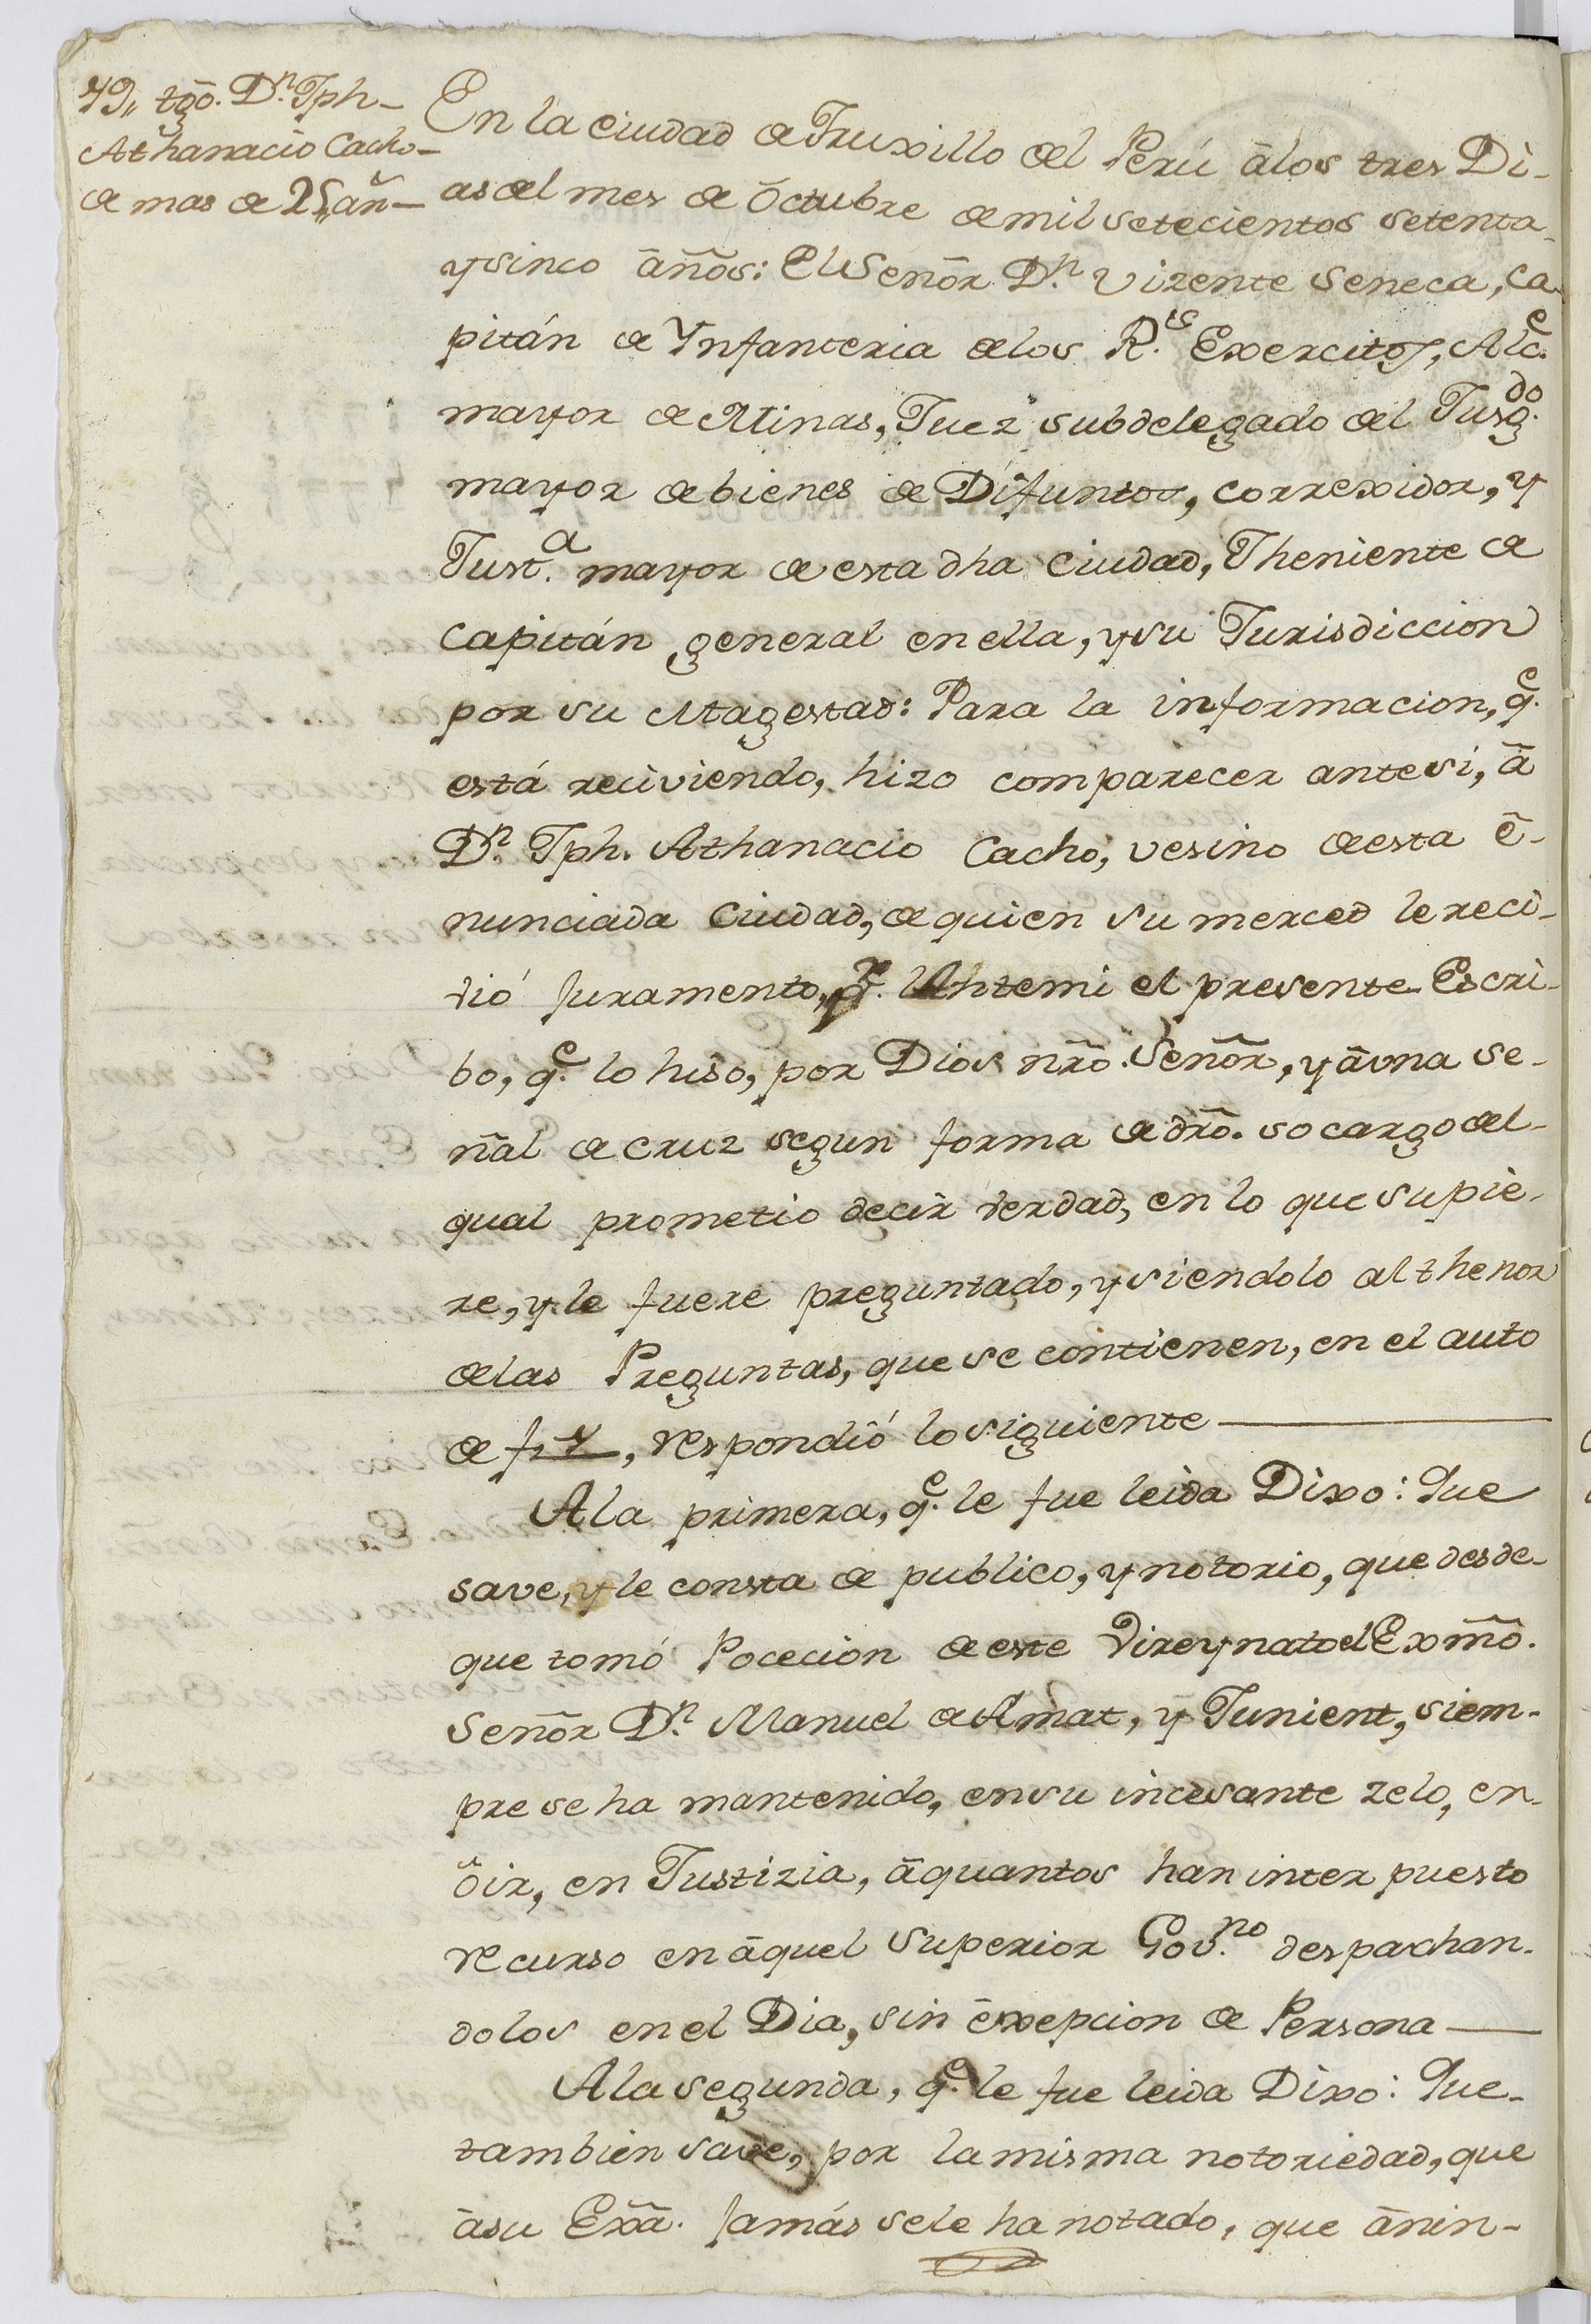 79,, tgō. Dn. Jph-
Athanacio Cacho-
de mas de 25, añ-
En la ciudad de Truxillo del Perú ā los tres Di-
as del mes de Octubre de mil setecientos setenta
y sinco āños: El Señor Dn. Vizente Seneca, Ca-
pitán de Ynfanteria de los Rs. Exercitos, Alce.
mayor de Minas, Juez subdelegado del Jusgdo.
mayor de bienes de Difuntos, correxidor, y
Justa. mayor de esta dha Ciudad, Theniente de
Capitán general en ella, y su Jurisdiccion
por su Magestad: Para la informacion, qe.
está reciviendo, hizo comparecer ante si, ā
Dn. Jph. Athanacio Cacho, vesino de esta ē-
nunciada Ciudad, de quien su merced le reci-
vió Juramento, pr. Ante mi el presente Escri-
bo, qe. lo hiso, por Dios nrō. Señor, y ā vna se-
ñal de cruz segun forma de drō. so cargo del-
qual prometio decir verdad, en lo que supie-
re, y le fuere preguntado, y siendolo al thenor
de las Preguntas, que se contienen, en el auto
de f, respondió lo siguiente
A la primera, qe. le fue leida Dixo: Que
save, y le consta de publico, y notorio, que desde-
que tomó Pocecion de este Vireynato el Exmō.
Señor Dn. Manuel de Amat, y Junient, siem-
pre se ha mantenido, en su incesante zelo, en-
ōir, en Justizia, ā quantos han interpuesto
recurso en āquel Superior Govno. despachan-
dolos en el Dia, sin ēxepcion de Persona
A la segunda, qe. le fue leida Dixo: Que-
tambien save, por la misma notoriedad, que
ā su Exā. Jamás se le ha notado, que ā nin-